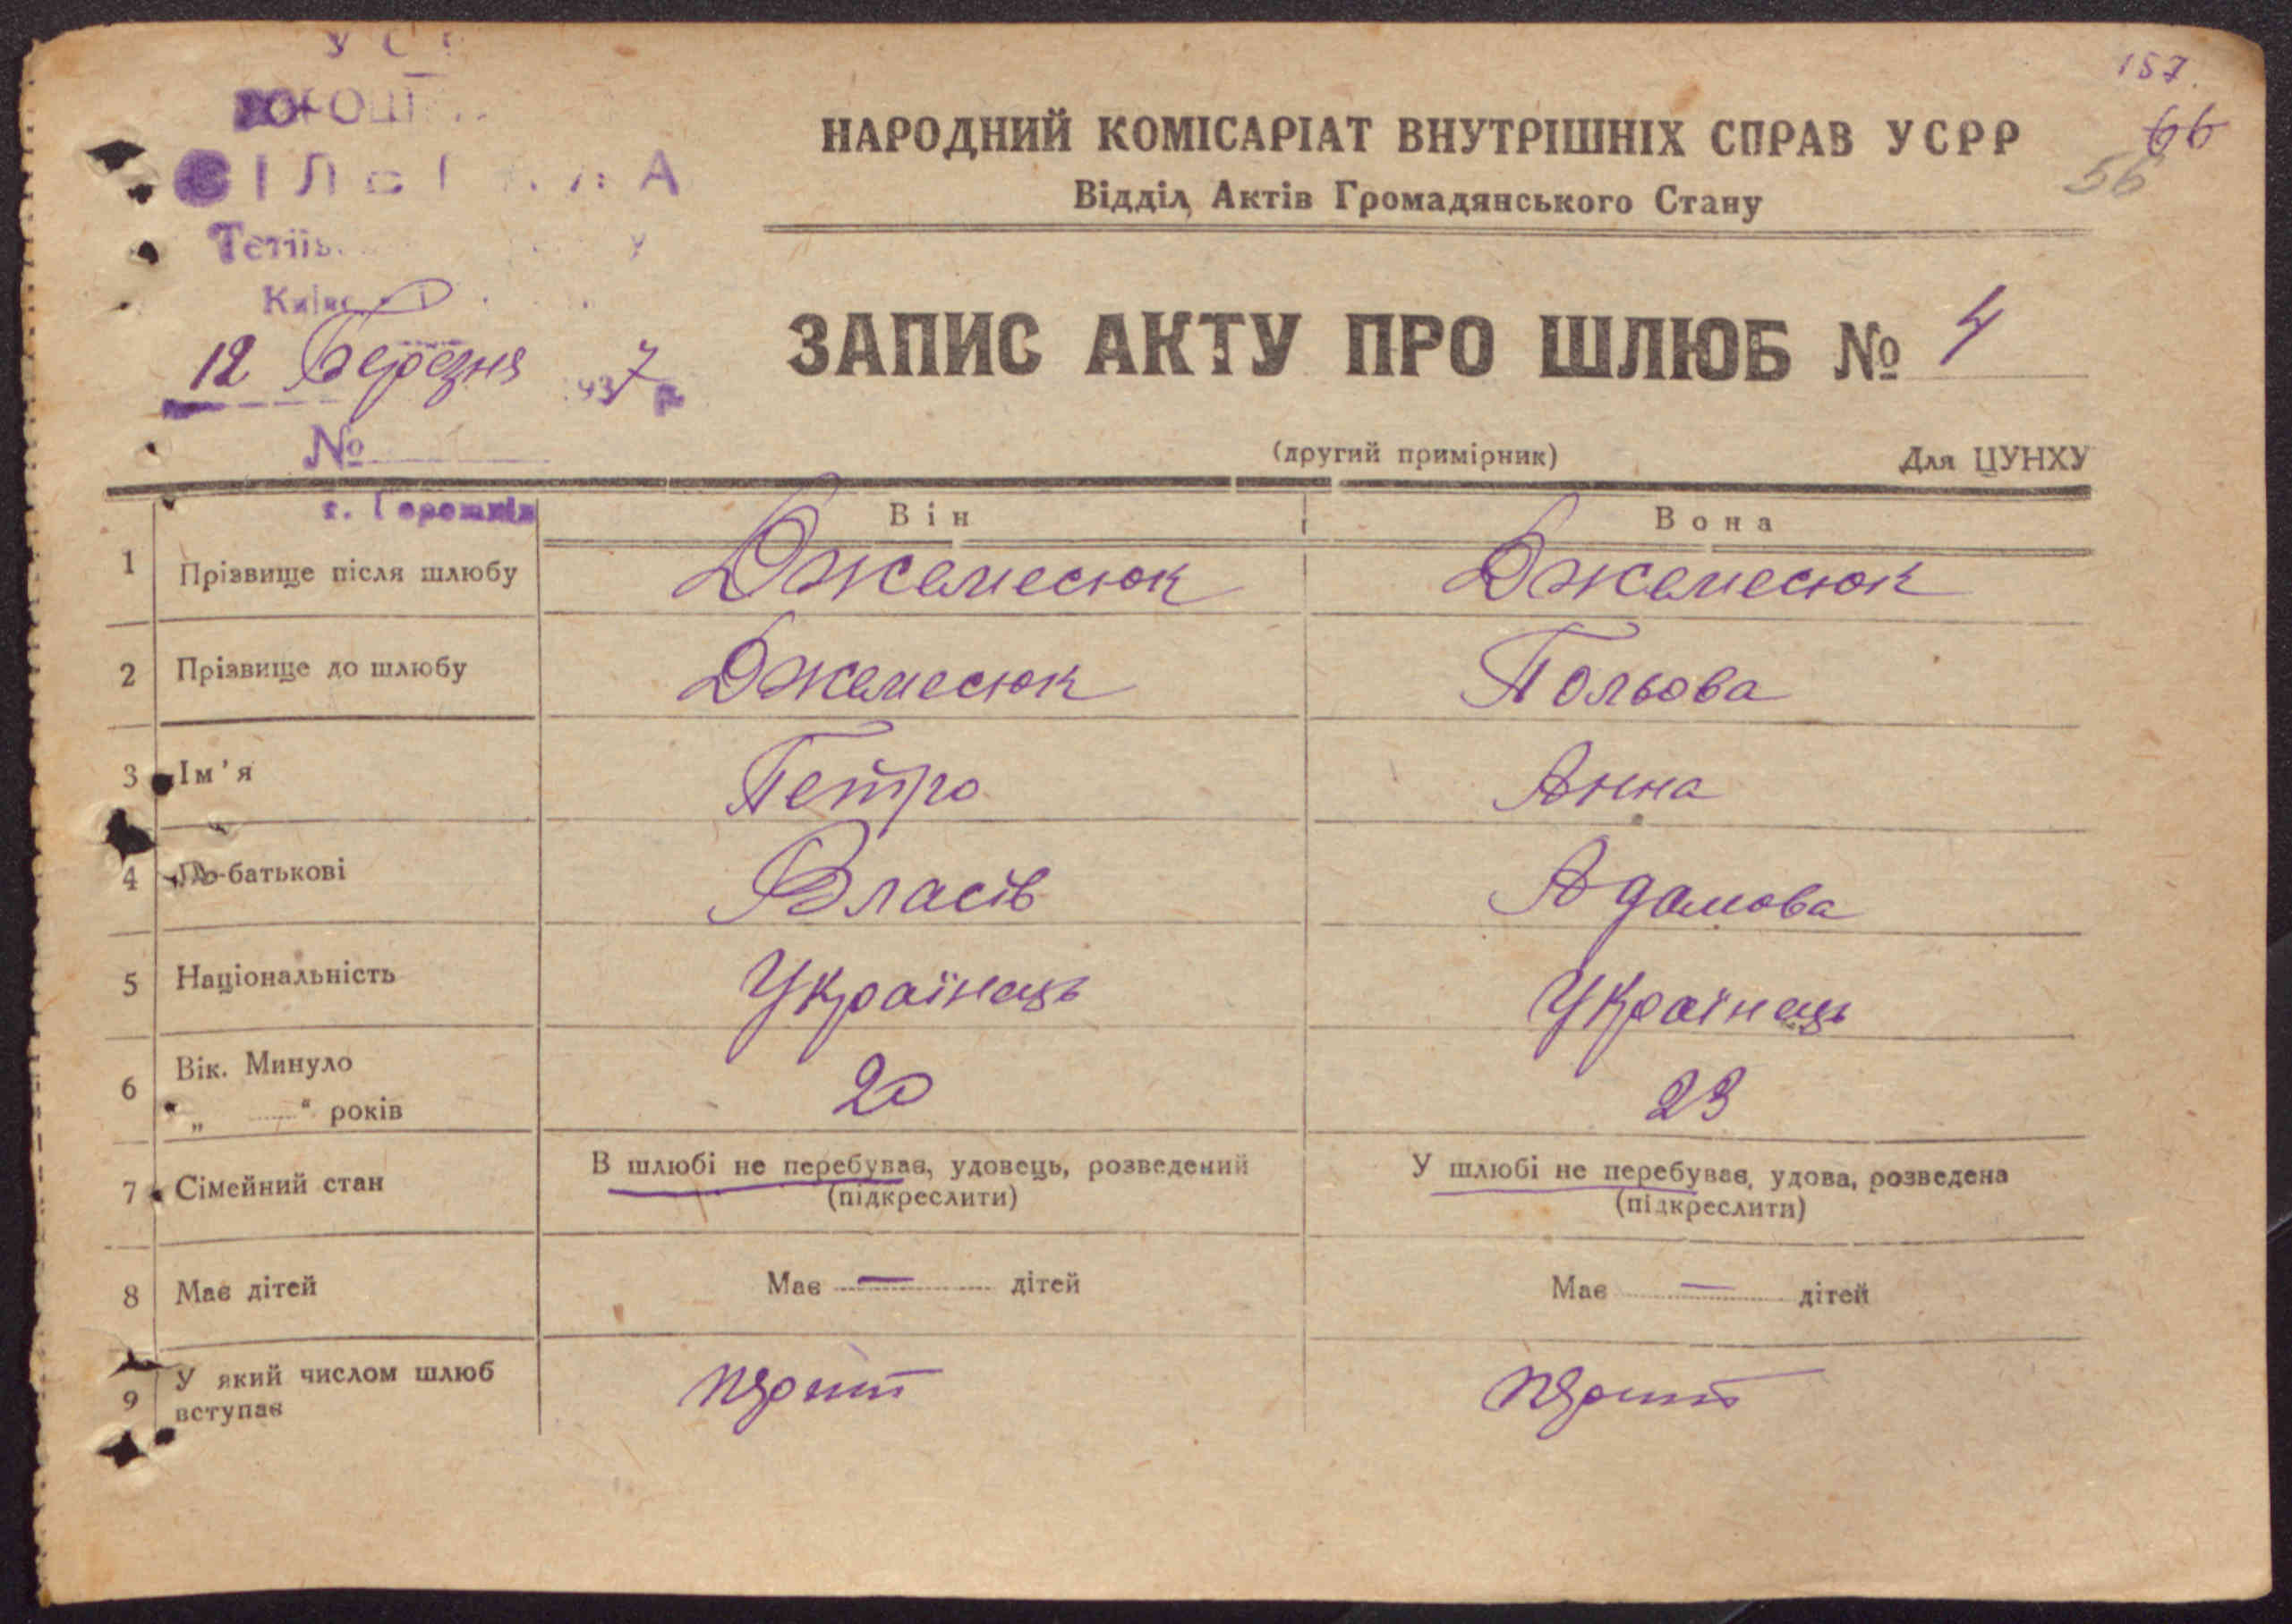 157.
66
56
НАРОДНИЙ КОМІСАРІАТ ВНУТРІШНІХ СПРАВ УСРР
Відділ Актів Громадянського Стану
12 Березня 1937 р.
ЗАПИС АКТУ ПРО ШЛЮБ № 4
№
(другий примірник) Для ЦУНХУ
Він Вона
1 Прізвище після шлюбу Джемесюк Джемесюк
2 Прізвище до шлюбу Джемесюк Польова
3 Ім'я Петро Анна
4 По-батькові Власів Адамова
5 Національність Українець Українець
6 Вік. Минуло
„ “ років 20 23
7 Сімейний стан В шлюбі не перебував, удовець, розведений У шлюбі не перебував, удова, розведена
(підкреслити) (підкреслити)
8 Має дітей Має — дітей Має — дітей
9 У який числом шлюб
вступає